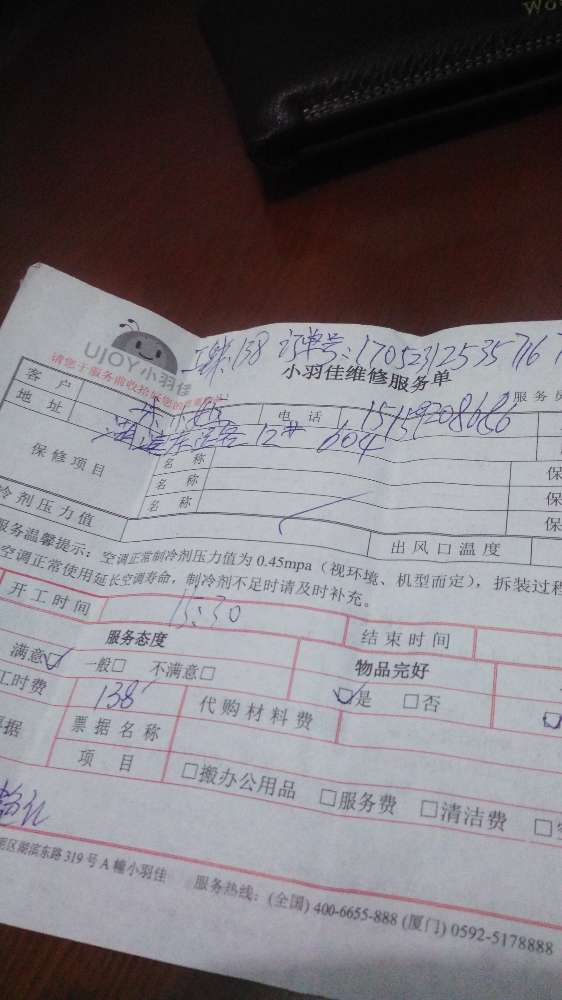 Wo
138 订单号:170523125357167
UJOY小羽佳
小羽佳维修服务单
请您于服务前收拾好您的
服务员
客户 电话 15159208686
地址 12# 604
保修项目 名称 保
名称 保
名称 保
冷剂压力值 出风口温度
服务温馨提示:空调正常制冷剂压力值为0.45mpa(视环境、机型而定),拆装过程
空调正常使用延长空调寿命,制冷剂不足时请及时补充。
开工时间 15:30 结束时间
服务态度 物品完好
满意☑ 一般□ 不满意□ ☑是 □否
工时费 138 代购材料费
票据 票据名称
项目 □搬办公用品 □服务费 □清洁费
区湖滨东路319号A幢小羽佳 服务热线:(全国)400-6655-888(厦门)0592-5178888